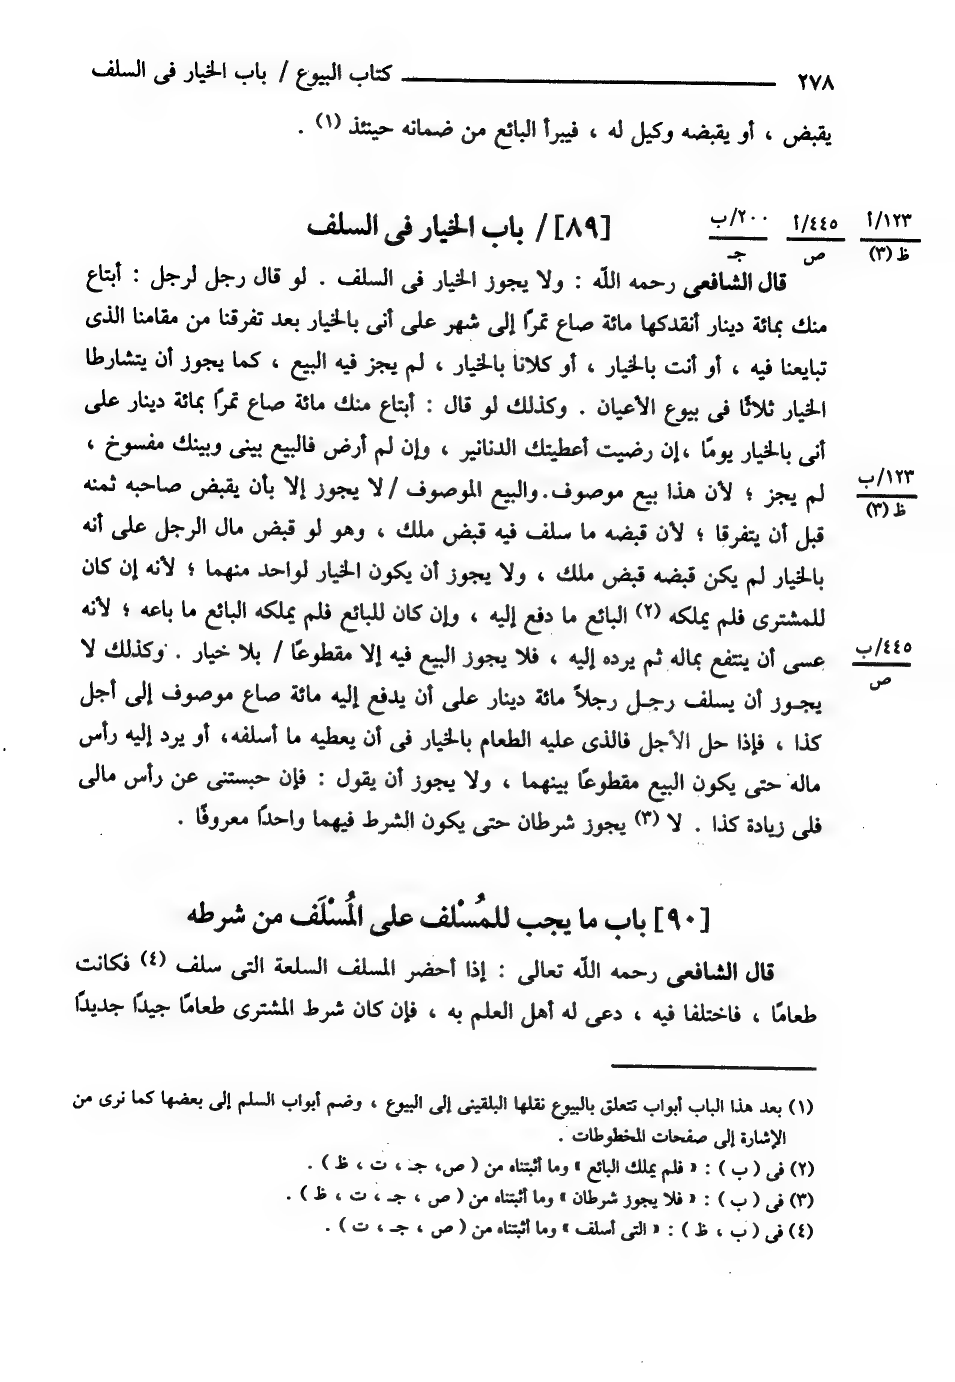 ٢٧٨ كتاب البيوع / باب الخيار فى السلف
يقبض ، أو يقبضه وكيل له ، فيبرأ البائع من ضمانه حينئذ (١) .
[٨٩] / باب الخيار فى السلف
١٢٣/أ
ظ (٣)
٤٤٥/أ
ص
٢٠٠/ب
جـ
قال الشافعى رحمه الله : ولا يجوز الخيار فى السلف . لو قال رجل لرجل : أبتاع
منك بمائة دينار أنقدكها مائة صاع تمرًا إلى شهر على أنى بالخيار بعد تفرقنا من مقامنا الذى
تبايعنا فيه ، أو أنت بالخيار ، أو كلانا بالخيار ، لم يجز فيه البيع ، كما يجوز أن يتشارطا
الخيار ثلاثًا فى بيوع الأعيان . وكذلك لو قال : أبتاع منك مائة صاع تمرًا بمائة دينار على
أنى بالخيار يومًا ،إن رضيت أعطيتك الدنانير ، وإن لم أرض فالبيع بينى وبينك مفسوخ ،
لم يجز ؛ لأن هذا بيع موصوف.والبيع الموصوف / لا يجوز إلا بأن يقبض صاحبه ثمنه
١٢٣/ب
ظ (٣)
قبل أن يتفرقا ؛ لأن قبضه ما سلف فيه قبض ملك ، وهو لو قبض مال الرجل على أنه
بالخيار لم يكن قبضه قبض ملك ، ولا يجوز أن يكون الخيار لواحد منهما ؛ لأنه إن كان
للمشترى فلم يملكه (٢) البائع ما دفع إليه ، وإن كان للبائع فلم يملكه البائع ما باعه ؛ لأنه
عسى أن ينتفع بماله ثم يرده إليه ، فلا يجوز البيع فيه إلا مقطوعًا / بلا خيار . وكذلك لا
٤٤٥/ب
ص
يجـوز أن يسلف رجـل رجلاً مائة دينار على أن يدفع إليه مائة صاع موصوف إلى أجل
كذا ، فإذا حل الأجل فالذى عليه الطعام بالخيار فى أن يعطيه ما أسلفه، أو يرد إليه رأس
ماله حتى يكون البيع مقطوعًا بينهما ، ولا يجوز أن يقول : فإن حبستنى عن رأس مالى
فلى زيادة كذا . لا (٣) يجوز شرطان حتى يكون الشرط فيهما واحدًا معروفًا .
[٩٠] باب ما يجب للمُسْلف على المُسْلَف من شرطه
قال الشافعى رحمه الله تعالى : إذا أحضر المسلف السلعة التى سلف (٤) فكانت
طعامًا ، فاختلفا فيه ، دعى له أهل العلم به ، فإن كان شرط المشترى طعامًا جيدًا جديدًا
(١) بعد هذا الباب أبواب تتعلق بالبيوع نقلها البلقينى إلى البيوع ، وضم أبواب السلم إلى بعضها كما نرى من
الإشارة إلى صفحات المخطوطات .
(٢) فى ( ب ) : « فلم يملك البائع » وما أثبتناه من ( ص، جـ ، ت ، ظ ) .
(٣) فى ( ب ) : « فلا يجوز شرطان » وما أثبتناه من ( ص ، جـ ، ت ، ظ ) .
(٤) فى ( ب ، ظ ) : « التى أسلف » وما أثبتناه من ( ص ، جـ ، ت ) .